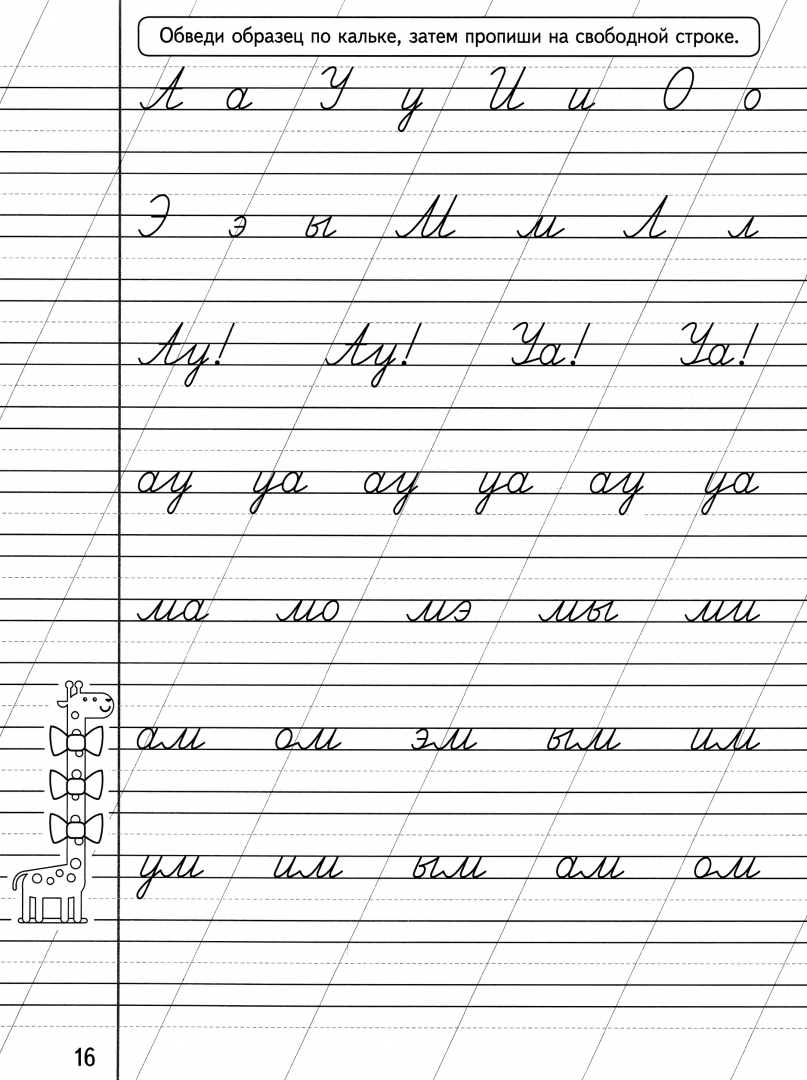 Обведи образец по кальке, затем пропиши на свободной строке.
А а У у И и О о
Э э ы М м Л л
Ау! Ау! Уа! Уа!
ау уа ау уа ау уа
ма мо мэ мы ми
ам ом эм ым им
ум им ым ам ом
16